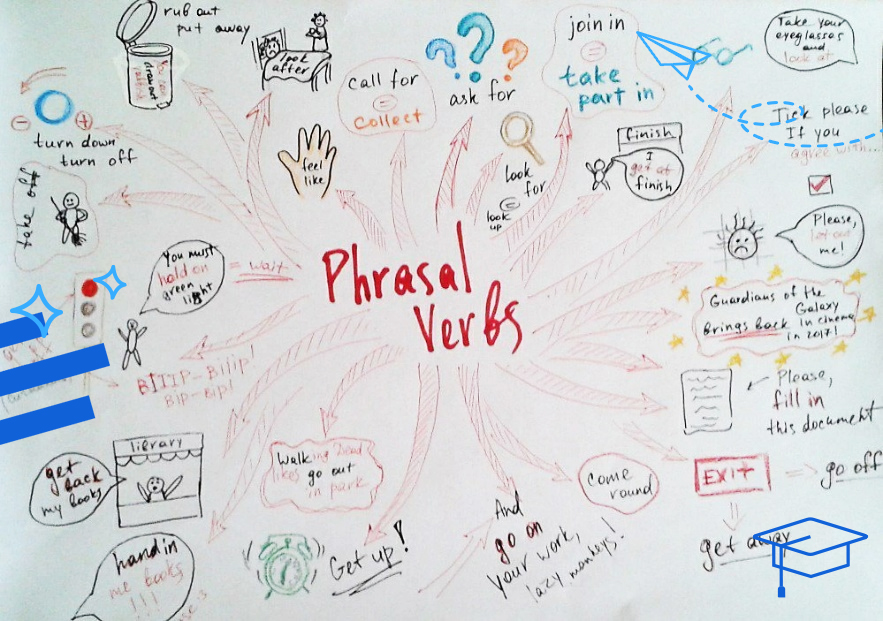 rub out
put away
You can
draw out
look
after
call for
=
collect
ask for
join in
=
take
part in
Take your
eyeglasses
and
look at
turn down
turn off
feel
like
Look
for
=
look
up
finish
I
get at
finish
Tick please
If you
agree with...
take off
You must
hold on
green
light
= wait
Phrasal
Verbs
Please,
let out
me!
Guardians of the
Galaxy
brings back in cinema
in 2017!
BIIIP-Biiip!
Bip-Bip!
Please,
fill in
this document
library
get
back
my books
Walking dead
likes go out
in park
come
round
EXIT
go off
get away
And
go on
your work,
lazy monkeys!
Get up!
hand in
me books
!!!